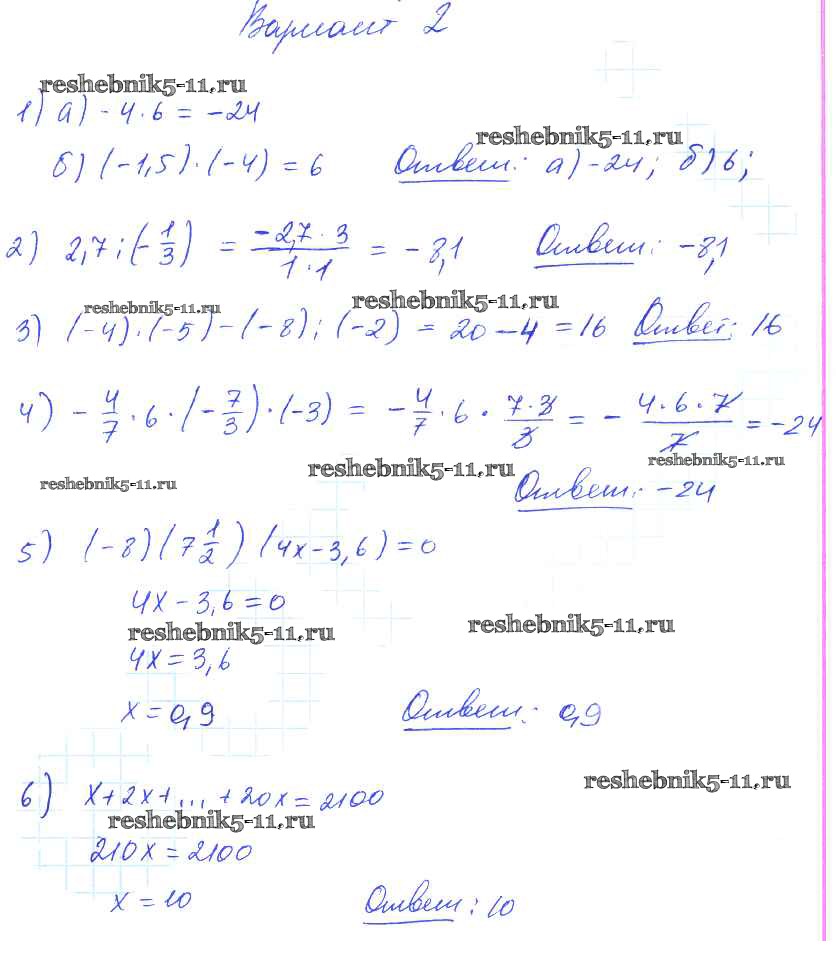 Вариант 2
reshebnik5-11.ru
1) а) - 4 · 6 = -24
reshebnik5-11.ru
б) (-1,5) · (-4) = 6 Ответ: а) -24; б) 6;
2) 2,7 : (- 1/3) = -2,7 · 3 / 1 · 1 = - 8,1 Ответ: -8,1
reshebnik5-11.ru reshebnik5-11.ru
3) (-4) · (-5) - (-8) : (-2) = 20 - 4 = 16 Ответ: 16
4) - 4/7 · 6 · (- 7/3) · (-3) = - 4/7 · 6 · 7 · 3 / 3 = - 4 · 6 · 7 / 7 = -24
reshebnik5-11.ru reshebnik5-11.ru reshebnik5-11.ru
Ответ: -24
5) (-8) (7 1/2) (4x - 3,6) = 0
4x - 3,6 = 0
reshebnik5-11.ru reshebnik5-11.ru
4x = 3,6
x = 0,9 Ответ: 0,9
reshebnik5-11.ru
6) x + 2x + ... + 20x = 2100
reshebnik5-11.ru
210x = 2100
x = 10 Ответ: 10